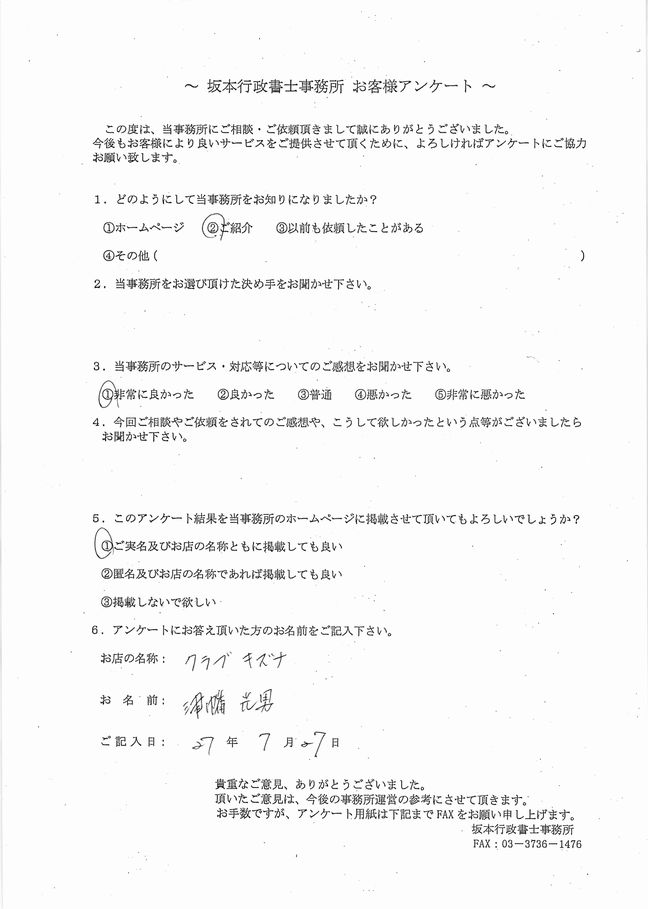 ～ 坂本行政書士事務所 お客様アンケート ～
この度は、当事務所にご相談・ご依頼頂きまして誠にありがとうございました。
今後もお客様により良いサービスをご提供させて頂くために、よろしければアンケートにご協力
お願い致します。
１．どのようにして当事務所をお知りになりましたか？
①ホームページ ②ご紹介 ③以前も依頼したことがある
④その他 ( )
２．当事務所をお選び頂けた決め手をお聞かせ下さい。
３．当事務所のサービス・対応等についてのご感想をお聞かせ下さい。
①非常に良かった ②良かった ③普通 ④悪かった ⑤非常に悪かった
４．今回ご相談やご依頼をされてのご感想や、こうして欲しかったという点等がございましたら
お聞かせ下さい。
５．このアンケート結果を当事務所のホームページに掲載させて頂いてもよろしいでしょうか？
①ご実名及びお店の名称ともに掲載しても良い
②匿名及びお店の名称であれば掲載しても良い
③掲載しないで欲しい
６．アンケートにお答え頂いた方のお名前をご記入下さい。
お店の名称： クラブ キズナ
お 名 前：
ご記入日： 27 年 7 月 27 日
貴重なご意見、ありがとうございました。
頂いたご意見は、今後の事務所運営の参考にさせて頂きます。
お手数ですが、アンケート用紙は下記まで FAX をお願い申し上げます。
坂本行政書士事務所
FAX：03－3736－1476